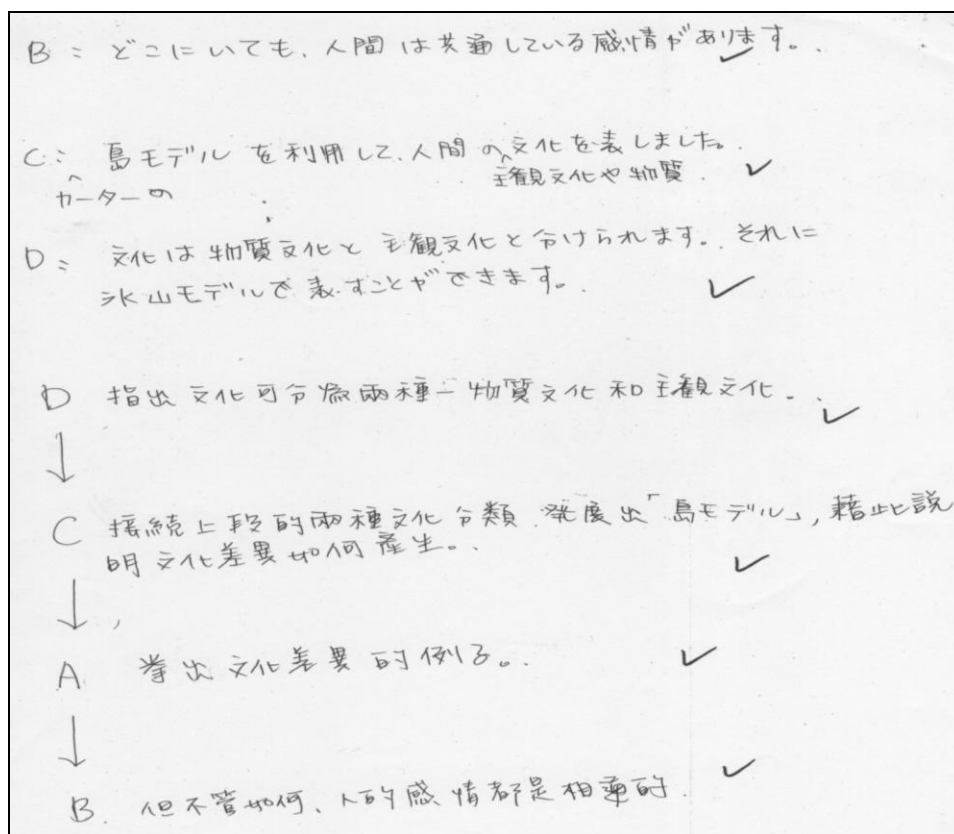 B: どこにいても、人間は共通している感情があります。
C: 島モデルを利用して、人間の文化を表しました。
カーターの 主観文化や物質
D: 文化は物質文化と主観文化と分けられます。それに
氷山モデルで表すことができます。
D 指出文化可分為兩種—物質文化和主観文化。
↓
C 接続上段的兩種文化分類,発展出「島モデル」,藉此說
明文化差異如何產生。
↓
A 挙出文化差異的例子。
↓
B. 但不管如何、人的感情都是相重的.